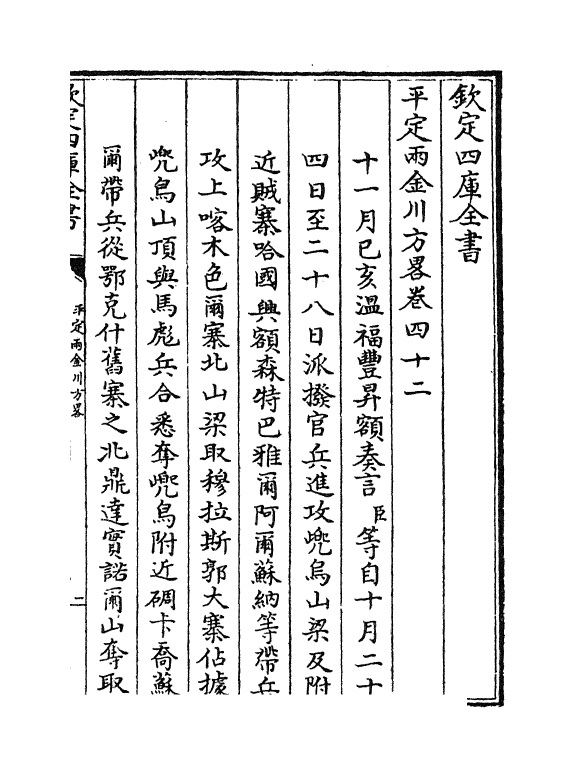 欽定四庫全書
平定兩金川方畧卷四十二
十一月己亥溫福豐昇額奏言臣等自十月二十
四日至二十八日派撥官兵進攻兜烏山梁及附
近賊寨哈國興額森特巴雅爾阿爾蘇納等帶兵
攻上喀木色爾寨北山梁取穆拉斯郭大寨佔據
兜烏山頂與馬彪兵合悉奪兜烏附近碉卡喬蘇
爾帶兵從鄂克什舊寨之北鼎達實諾爾山奪取
欽定四庫全書
平定兩金川方畧